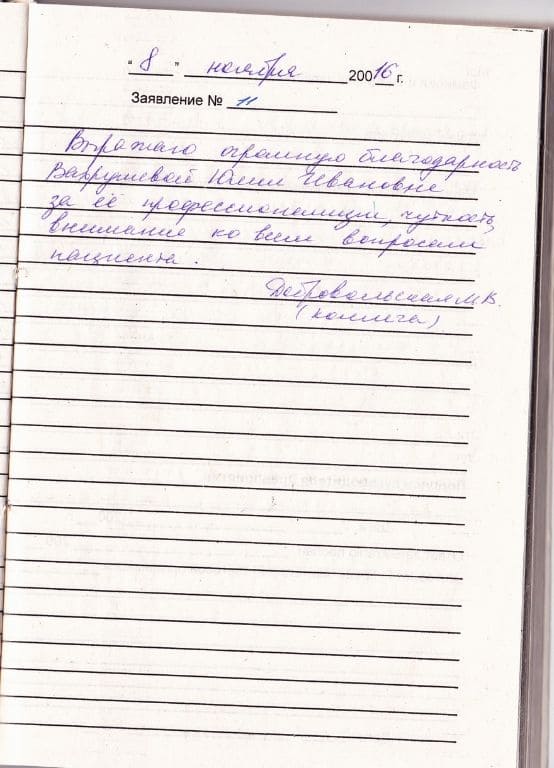 "8" ноября 20016 г.
Заявление № 11
Выражаю огромную благодарность
Вахрушевой Юлии Ивановне
за её профессионализм, чуткость,
внимание ко всем вопросам
пациента.
Добровольская М.В.